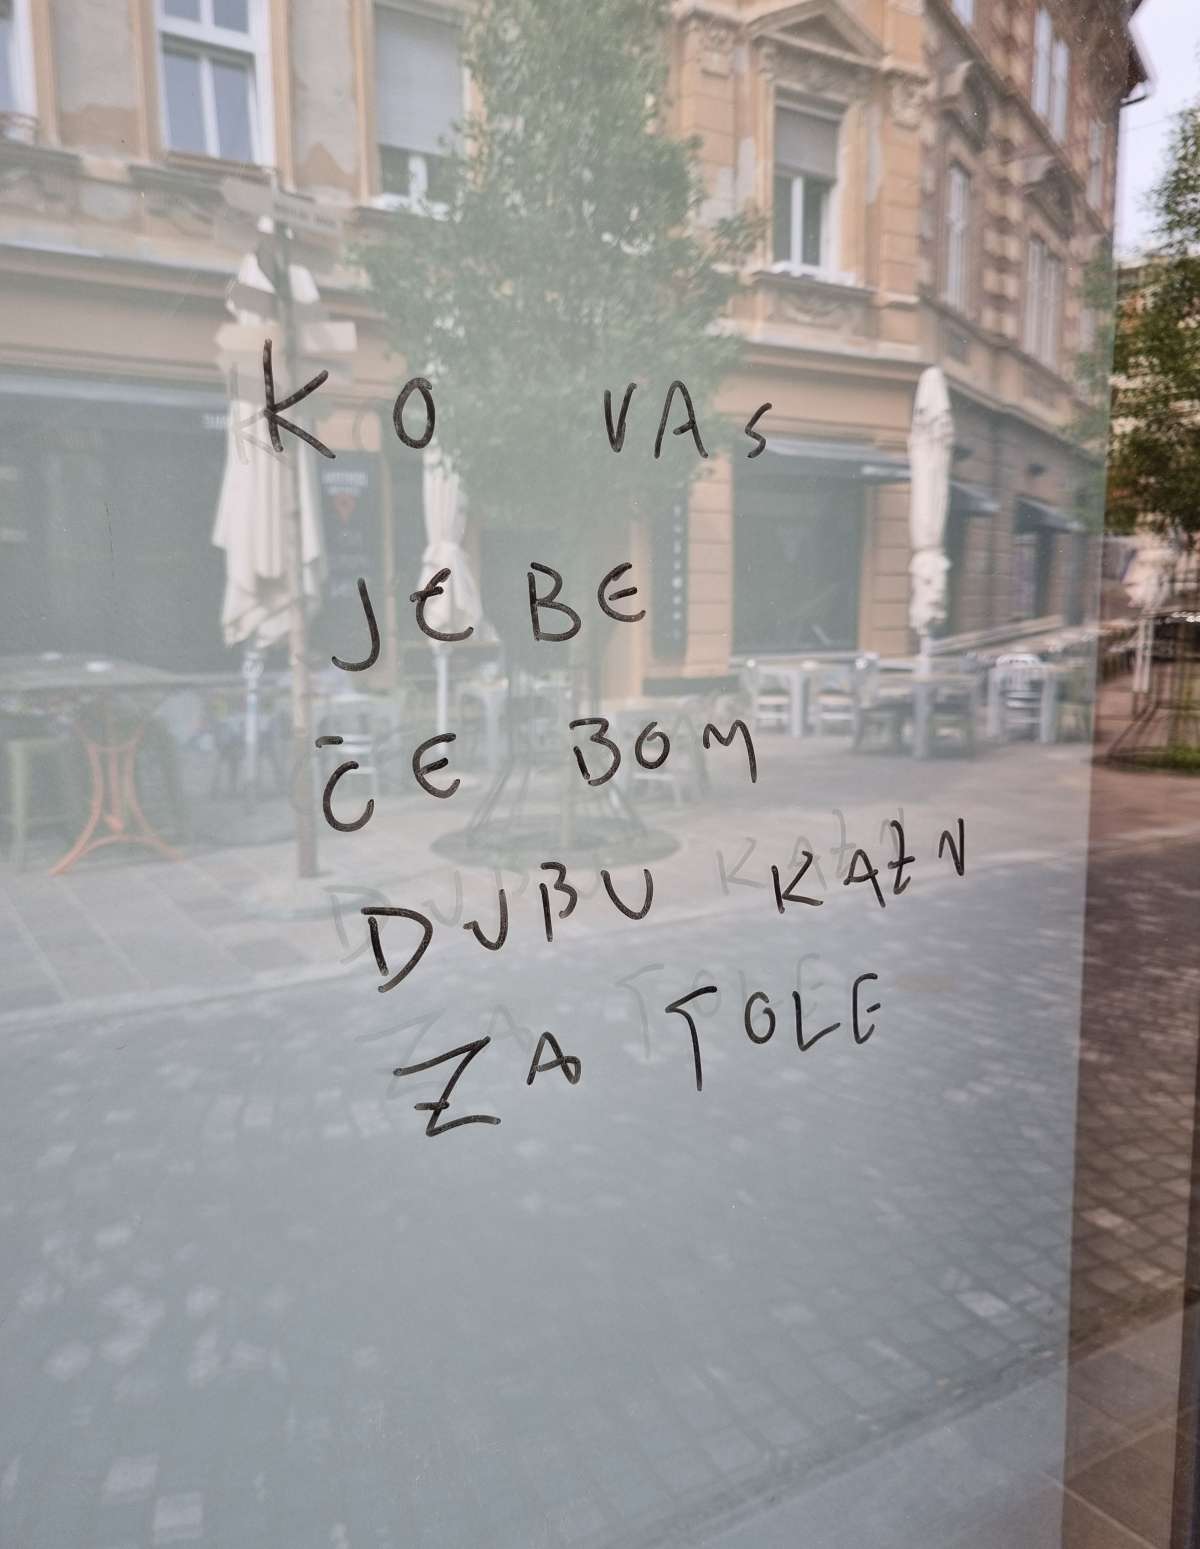 KO VAS
JEBE
ČE BOM
DJBU KAZN
ZA TOLE